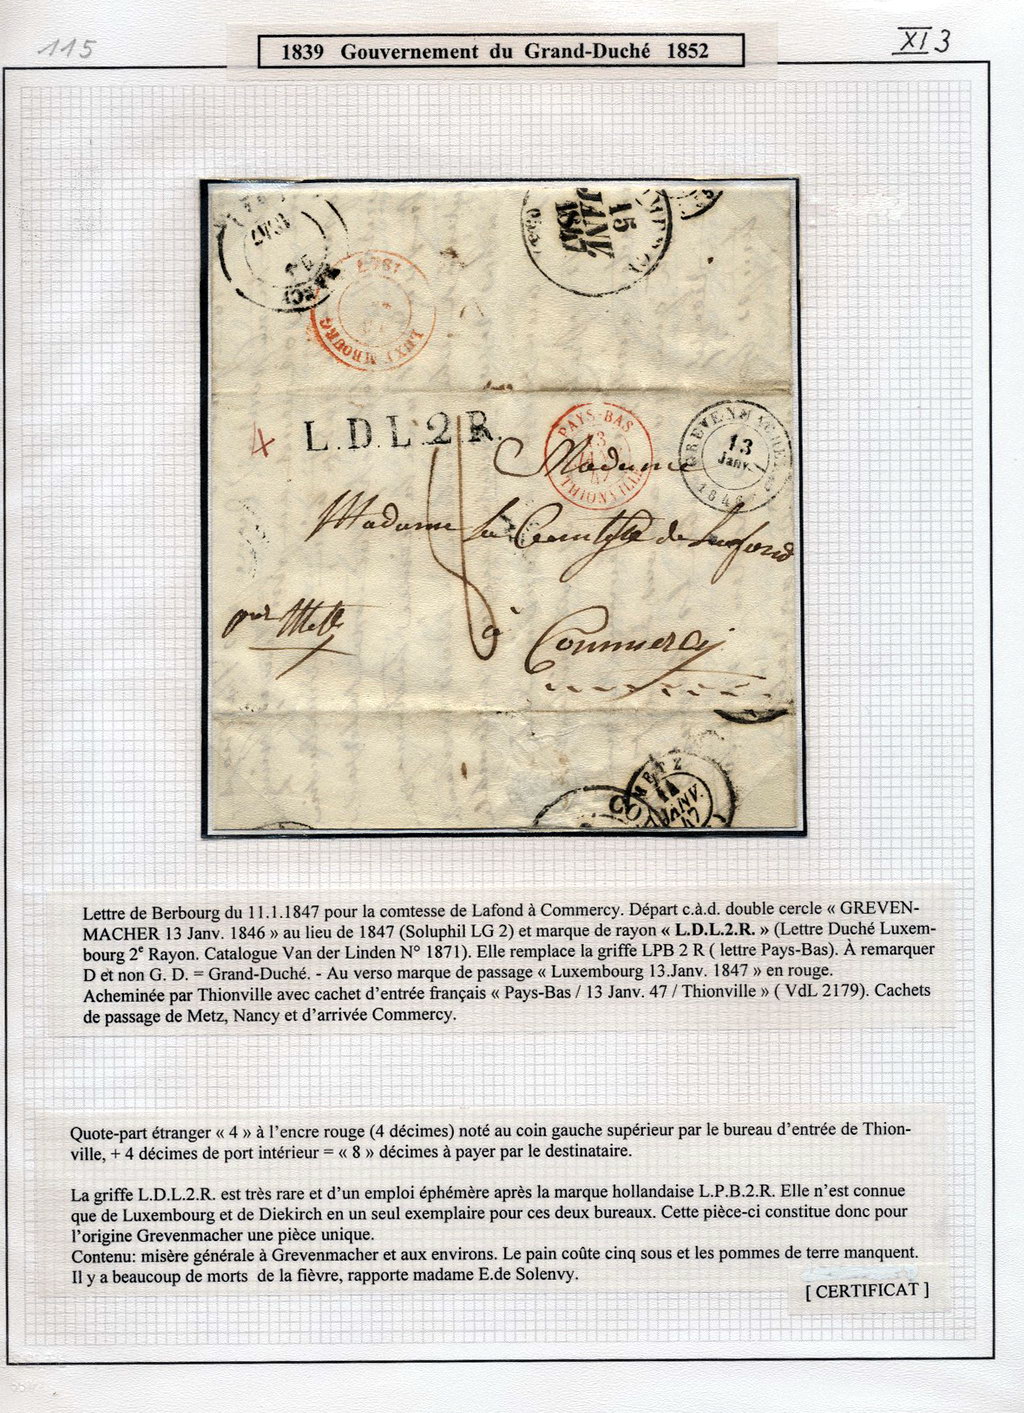 115
XI 3
1839 Gouvernement du Grand-Duché 1852
1847
15
JANV
1847
1847
LUXEMBOURG
4
L.D.L.2.R.
PAYS-BAS
13
JANV
47
THIONVILLE
GREVENMACHER
13
Janv.
1846
Madame
Madame La Comtesse de Lafond
par Metz
à
Commercy
METZ
14
JANV.
47
CO
Lettre de Berbourg du 11.1.1847 pour la comtesse de Lafond à Commercy. Départ c.à.d. double cercle « GREVEN-
MACHER 13 Janv. 1846 » au lieu de 1847 (Soluphil LG 2) et marque de rayon « L.D.L.2.R. » (Lettre Duché Luxem-
bourg 2e Rayon. Catalogue Van der Linden N° 1871). Elle remplace la griffe LPB 2 R ( lettre Pays-Bas). À remarquer
D et non G. D. = Grand-Duché. - Au verso marque de passage « Luxembourg 13.Janv. 1847 » en rouge.
Acheminée par Thionville avec cachet d'entrée français « Pays-Bas / 13 Janv. 47 / Thionville » ( VdL 2179). Cachets
de passage de Metz, Nancy et d'arrivée Commercy.
Quote-part étranger « 4 » à l'encre rouge (4 décimes) noté au coin gauche supérieur par le bureau d'entrée de Thion-
ville, + 4 décimes de port intérieur = « 8 » décimes à payer par le destinataire.
La griffe L.D.L.2.R. est très rare et d'un emploi éphémère après la marque hollandaise L.P.B.2.R. Elle n'est connue
que de Luxembourg et de Diekirch en un seul exemplaire pour ces deux bureaux. Cette pièce-ci constitue donc pour
l'origine Grevenmacher une pièce unique.
Contenu: misère générale à Grevenmacher et aux environs. Le pain coûte cinq sous et les pommes de terre manquent.
Il y a beaucoup de morts de la fièvre, rapporte madame E.de Solenvy.
[ CERTIFICAT ]